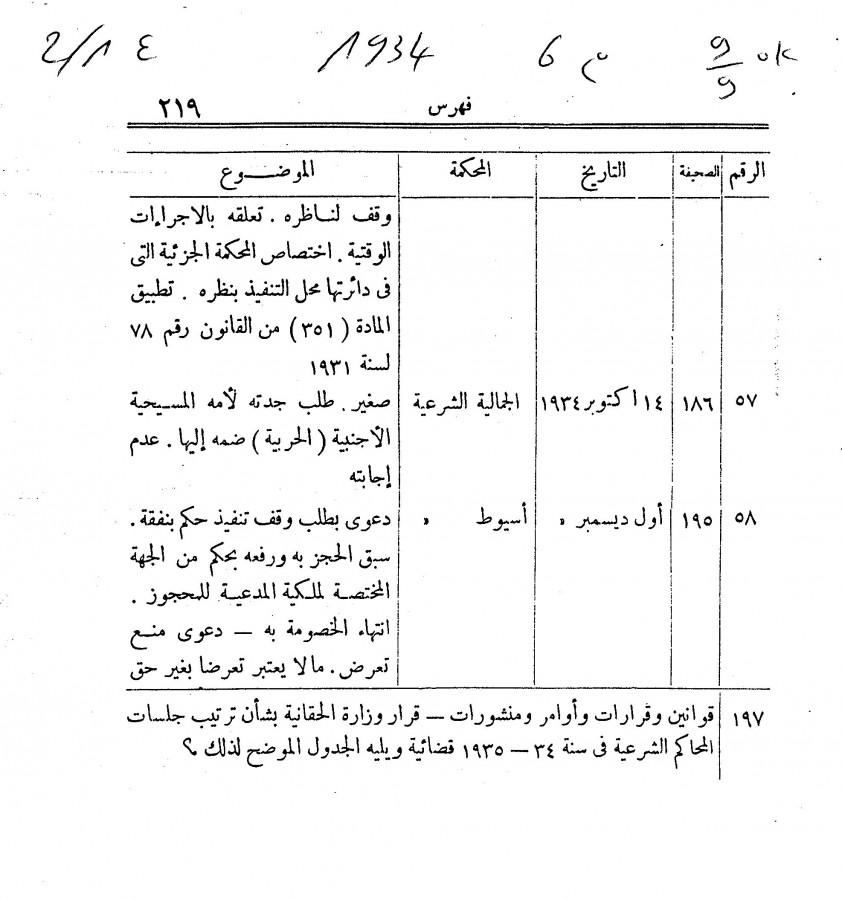 2/1 ٤ 1934 6 م 9/9 ok
فهرس ٢١٩
الرقم الصحيفة التاريخ المحكمة الموضـــوع
وقف لناظره . تعلقه بالاجراءات
الوقتية . اختصاص المحكمة الجزئية التى
فى دائرتها محل التنفيذ بنظره . تطبيق
المادة ( ٣٥١ ) من القانون رقم ٧٨
لسنة ١٩٣١
٥٧ ١٨٦ ١٤ اكتوبر ١٩٣٤ الجمالية الشرعية صغير . طلب جدته لأمه المسيحية
الأجنبية ( الحربية ) ضمه إليها . عدم
إجابته
٥٨ ١٩٥ أول ديسمبر » أسيوط » دعوى بطلب وقف تنفيذ حكم بنفقة .
سبق الحجز به ورفعه بحكم من الجهة
المختصة لملكية المدعية للمحجوز .
انتهاء الخصومة به — دعوى منع
تعرض . مالا يعتبر تعرضا بغير حق
١٩٧ قوانين وقرارات وأوامر ومنشورات — قرار وزارة الحقانية بشأن ترتيب جلسات
المحاكم الشرعية فى سنة ٣٤ — ١٩٣٥ قضائية ويليه الجدول الموضح لذلك